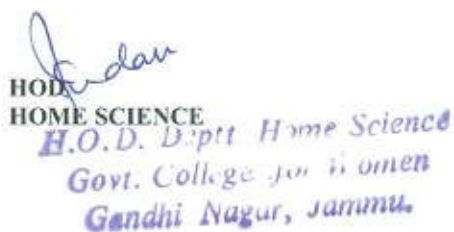 HOD
HOME SCIENCE
H.O.D. Deptt Home Science
Govt. College for Women
Gandhi Nagar, Jammu.